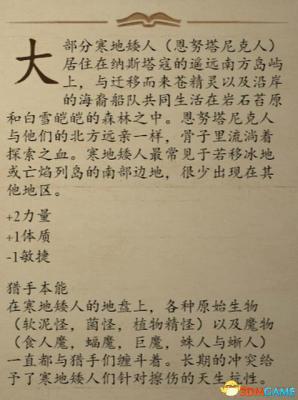 大部分寒地矮人（恩努塔尼克人）
居住在纳斯塔寇的遥远南方岛屿
上，与迁移而来苍精灵以及沿岸
的海裔船队共同生活在岩石苔原
和白雪皑皑的森林之中。恩努塔尼克人
与他们的北方远亲一样，骨子里流淌着
探索之血。寒地矮人最常见于若移冰地
或亡焰列岛的南部边地，很少出现在其
他地区。
+2力量
+1体质
-1敏捷
猎手本能
在寒地矮人的地盘上，各种原始生物
（软泥怪，菌怪，植物精怪）以及魔物
（食人魔，蝠魔，巨魔，蛛人与蜥人）
一直都与猎手们缠斗着。长期的冲突给
予了寒地矮人们针对擦伤的天生抗性。
3DMGAME